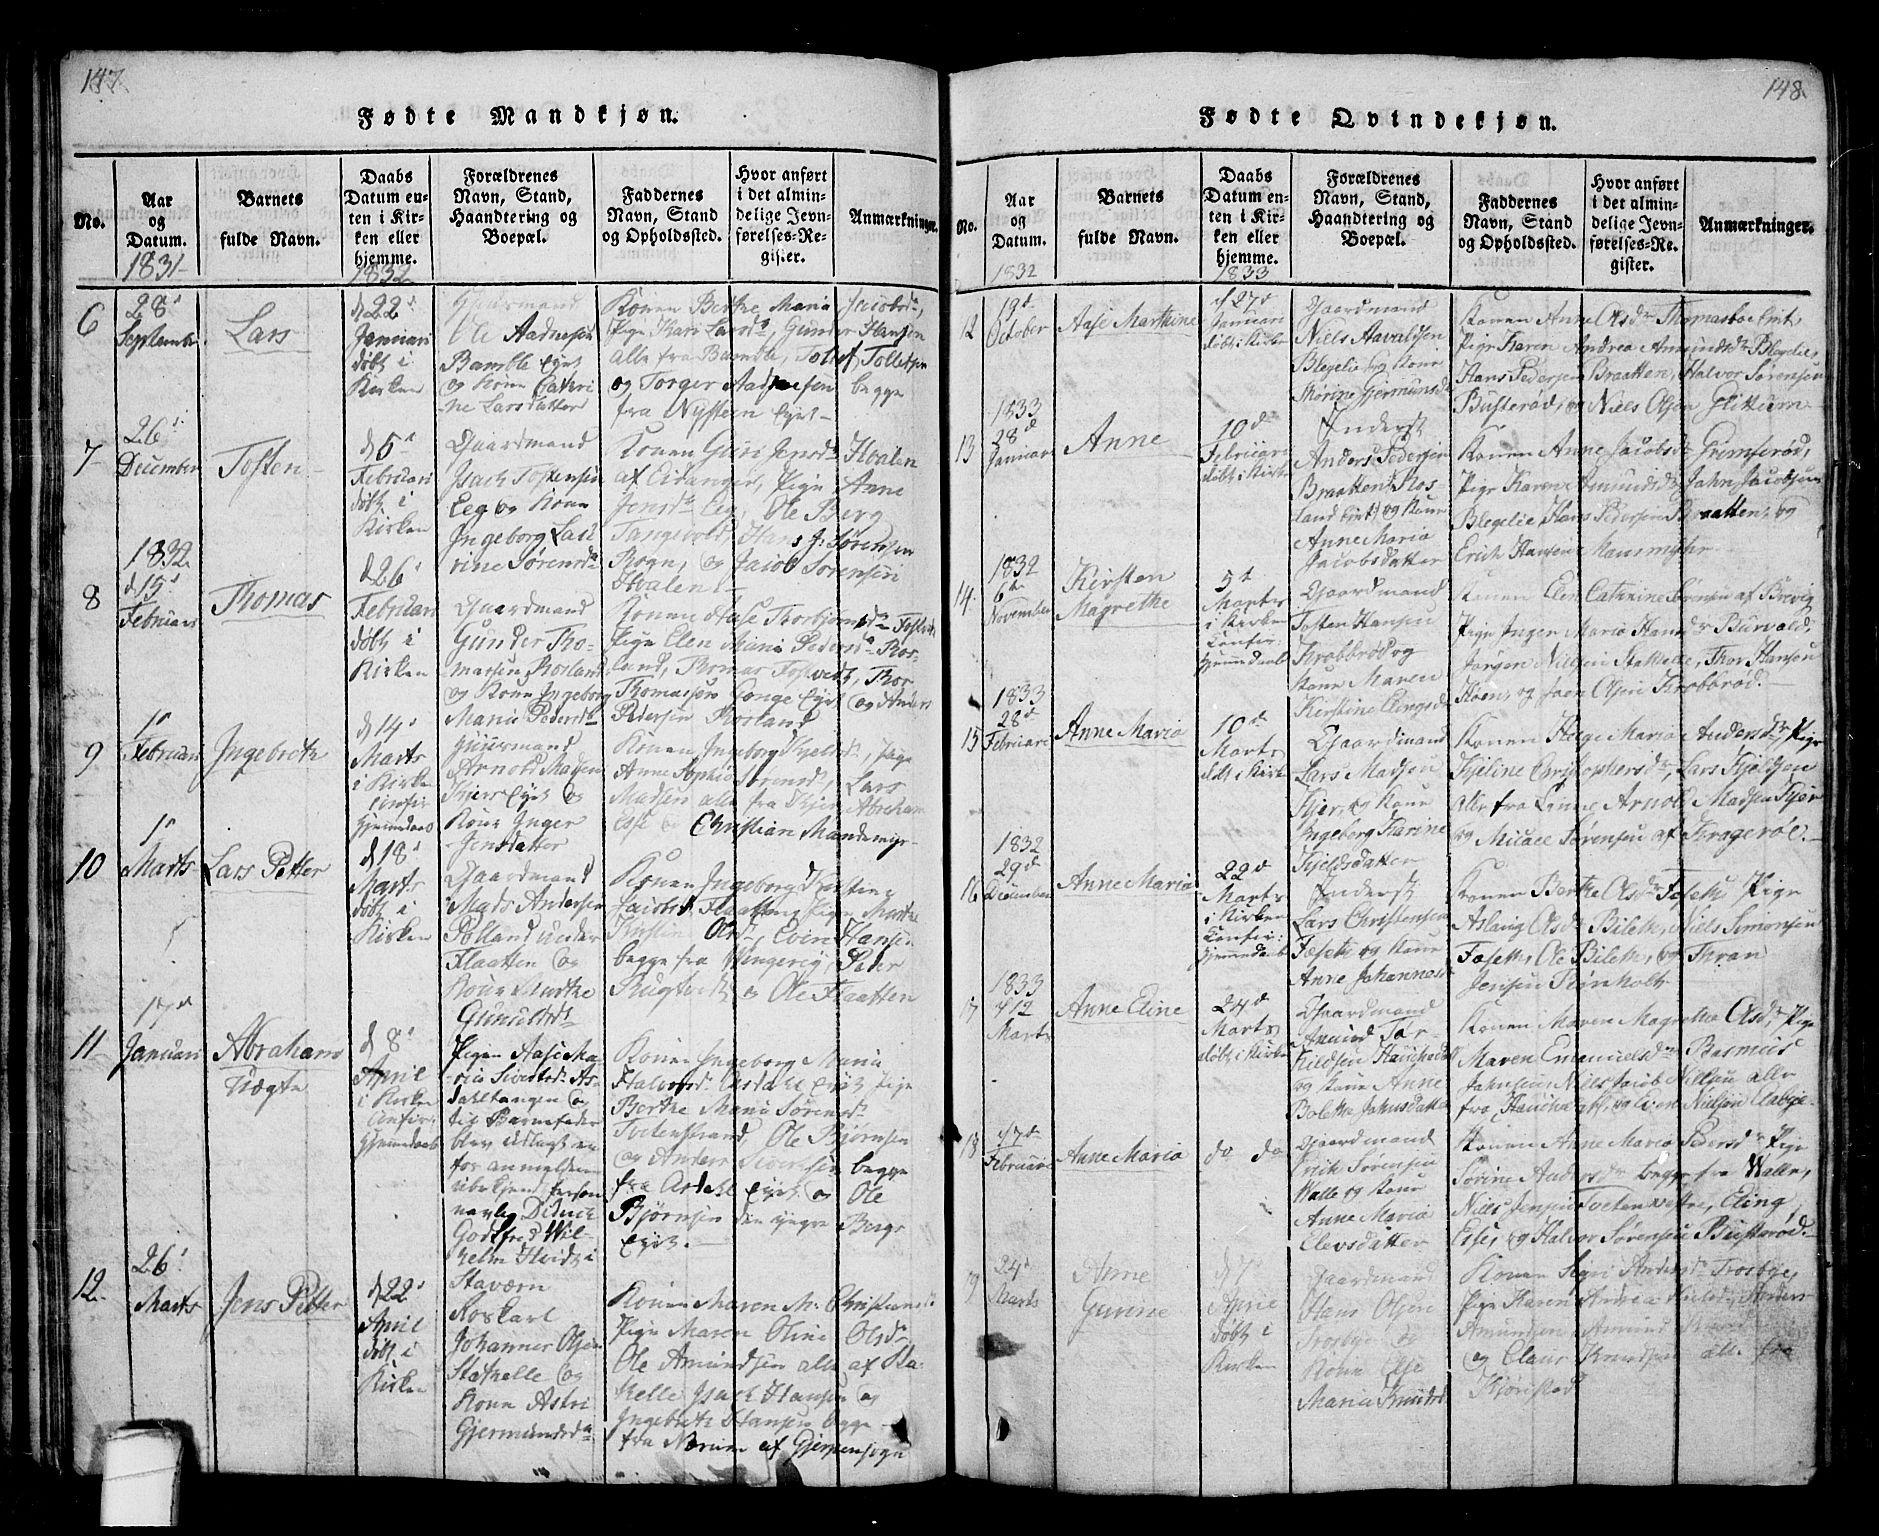 147.
Fødte Mandkjøn.
No.
Aar og Datum.
Barnets fulde Navn.
Daabs Datum enten i Kirken eller hjemme.
Forældrenes Navn, Stand, Haandtering og Boepæl.
Faddernes Navn, Stand og Opholdssted.
Hvor anført i det almindelige Jevnførelses-Register.
Anmærkninger.
1831
1832
6
28d
September
Lars
d 22d
Januari
døbt i
Kirken
Huusmand
Ole Aadnesen
Bamble Eyet
og Kone Cathri
ne Larsdatter
Konen Berthe Maria Jacobsdr,
Pige Kari Larsdr, Gunder Hansen
alle fra Bamble, Tollef Tollefsen
og Torger Aadnesen begge
fra Nysteen Eyet
7
26d
December
Tosten
d 5d
Februari
døbt i
Kirken
Gaardmand
Isach Tostensen
Eeg og Kone
Ingeborg Cath
rine Sørensdr
Konen Guri Jensdr Hvalen
af Eidanger, Pige Anne
Jensdr Eeg, Ole Berg
Tangevald, Hans J: Sørensen
Rogn, og Jacob Sørensen
Hvalen
1832
8
d 15d
Februari
Thomas
d 26d
Februari
døbt i
Kirken
Gaardmand
Gunder Tho-
massen Rosland
og Kone Ingeborg
Maria Pedersdr
Konen Aase Thorbjørnsdr Tostvedt
Pige Elen Maria Pedersdr Ros-
land, Thomas Tostvedt, Thor
Thomassen Gonge Eyet og Anders
Pedersen Rosland
9
1d
Februari
Ingebreth
d 14d
Marts
i Kirken
confir
Hjemmedaab
Huusmand
Arnold Madsen
Kjers Eyet og
Kone Inger
Jensdatter
Konen Ingeborg Kjelsdr, Pige
Anne Sophie Arensdr, Lars
Madsen alle fra Kjer, Abraham
Esse og Christian Mandemyr
10
1d
Marts
Lars Petter
d 18d
Marts
døbt i
Kirken
Gaardmand
Mads Andersen
Pølland under
Flaatten og
Kone Marthe
Gunuldsdr
Konen Ingeborg Kirstine
Jacobsdr Flaatten, Pige Marthe
Kirstine Olsdr, Even Hansen
begge fra Vingereig, Peder
Rugtvedt og Ole Flaatten
11
17d
Januari
Abraham
Uægte
d 8d
April
i Kirken
confir:
Hjemmedaab
Pigen Aase Ma-
ria Sivertsdr As-
dahltangen og
til Barnefader
blev udlagt en
før anmeldt
ubekjent Person
navl: Didrich
Godtfred Wil-
helm Heidt i
Stavern
Konen Ingeborg Maria
Halvorsdr Asdahl Eyet, Pige
Berthe Maria Sørensdr
Todenstrand, Ole Bjørnsen
og Anders Sivertsen begge
fra Asdahl Eyet og Ole
Bjørnsen den yngre Bergs
Eyet.
12
26d
Marts
Jens Petter
d 22d
April
døbt i
Kirken
Koskarl
Johannes Olsen
Stathelle og
Kone Astri
Gjermundsdr
Konen Maren M: Christiansdr
Pige Maren Oline Olsdr,
Ole Amundsen alle af Sta
thelle, Isach Hansen og
Ingebreth Hansen begge
fra Norum af Gjerpensogn
148.
Fødte Qvindekjøn.
No.
Aar og Datum.
Barnets fulde Navn.
Daabs Datum enten i Kirken eller hjemme.
Forældrenes Navn, Stand, Haandtering og Boepæl.
Faddernes Navn, Stand og Opholdssted.
Hvor anført i det almindelige Jevnførelses-Register.
Anmærkninger.
1832
1833
12
19d
October
Aase Marthine
d 27d
Januari
døbt i Kirke
Gaardmand
Niels Aavaldsen
Blegelie og Kone
Mørine Gjermunsdr
Konen Anne Olsdr Thomasboe Eyet,
Pige Karen Andrea Amundsdr Blegelie,
Hans Pedersen Braatten, Halvor Sørensen
Busterød, og Niels Olsen Glittum
1833
13
28d
Januari
Anne
10d
Februari
døbt i Kirke
Inderst
Anders Pedersen
Braatten (Ros-
land Eyet) og Kone
Anne Maria
Jacobsdatter
Konen Anne Jacobsdr Grimserød,
Pige Karen Amundsdr, Jahn Jacobsen
Blegelie, Hans Pedersen Braatten, og
Erich Hansen Mausmyhr
1832
14
6te
November
Kirsten
Magrethe
5te
Marts
i Kirken
Confir:
Hjemmedaab
Gaardmand
Tosten Hansen
Krobbrød og
Kone Maren
Kirstine Elingsdr
Konen Elen Cathrine Sørensen af Brevig
Pige Inger Maria Hansdr Burvald,
Jørgen Nielsen Stathelle, Thor Hansen
Høen, og Joen Olsen Krobbrød.
1833
15
28d
Februari
Anne Maria
10d
Marts
døbt i Kirk
Gaardmand
Lars Madsen
Kjer, og Kone
Ingeborg Karine
Kjeldsdatter
Konen Helge Maria Andersdr, Pige
Kjeline Christophersdr, Lars Kjeldsen
alle fra Linne, Arnold Madsen Kjer
og Micael Sørensen af Kragerøe.
1832
16
29d
December
Anne Maria
22d
Marts
i Kirken
Confir:
Hjemmedaab
Inderst
Lars Christensen
Fæseth og Kone
Anne Johannesdr
Konen Berthe Olsdr Foseth, Pige
Aslaug Olsdr Bileth, Niels Simonsen
Foseth, Ole Bileth, og Thran
Jensen Tønholt
1833
17
d 12
Marts
Anne Eline
24d
Marts
døbt i Kirken
Gaardmand
Amund Tor-
kildsen Hauiholt
og Kone Anne
Bolette Jahnsdatter
Konen Maren Magrethe Olsdr, Pige
Maren Emanuelsdr, Rasmus
Jahnsen, Niels Jacob Nielsen alle
fra Hauiholt, og Even Nielsen Aabye.
18
17d
Februari
Anne Maria
do do
Gaardmand
Erich Sørensen
Walle og Kone
Anne Maria
Elevsdatter
Konen Anne Maria Pedersdr, Pige
Sørine Andersdr begge fra Walle,
Niels Jensen Tveten vestre, Eling
Esse, og Halvor Sørensen Busterød.
19
24d
Marts
Anne
Gurine
d 7d
Aprie
døbt i
Kirken
Gaardmand
Hans Olsen
Trosbye og
Kone Else
Maria Knudsdr
Konen Segri Andersdr Trosbye,
Pige Karen Andrea Nielsdr, Anders
Amundsen, Amund
og Claus Knudsen alle fra
Kjørstad